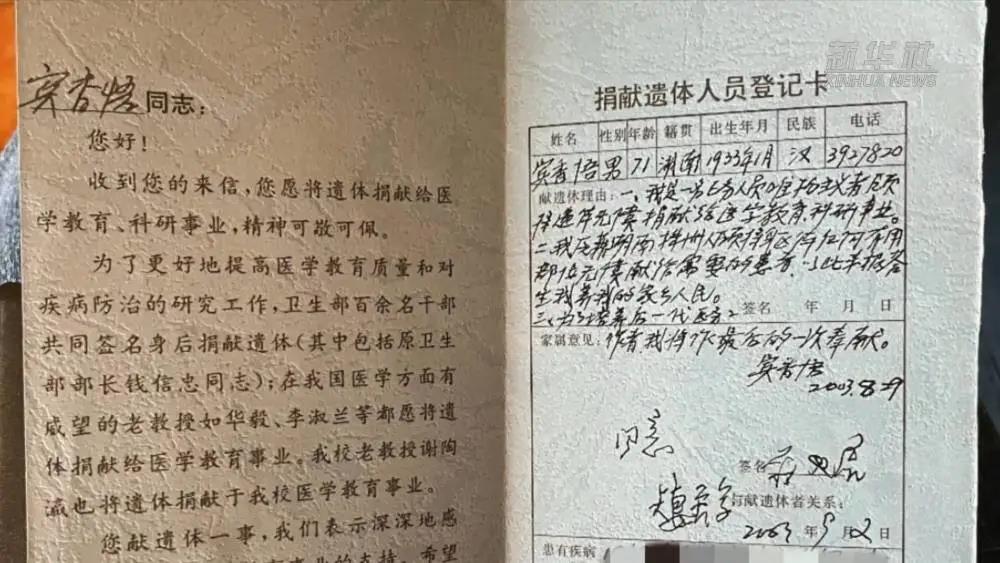 宾香悟同志：
您好！
收到您的来信，您愿将遗体捐献给医
学教育、科研事业，精神可敬可佩。
为了更好地提高医学教育质量和对
疾病防治的研究工作，卫生部百余名干部
共同签名身后捐献遗体（其中包括原卫生
部部长钱信忠同志）；在我国医学方面有
威望的老教授如华毅、李淑兰等都愿将遗
体捐献给医学教育事业。我校老教授谢陶
瀛也将遗体捐献于我校医学教育事业。
您献遗体一事，我们表示深深地感
事业的支持。希望
新华社
XINHUA NEWS
捐献遗体人员登记卡
姓名 性别 年龄 籍贯 出生年月 民族 电话
宾香悟 男 71 湖南 1933年1月 汉 3927820
献遗体理由：一、我是一名医务人员唯物主义者愿
将遗体无偿捐献给医学教育、科研事业。
二、我在湖南株洲人
部位无偿献给需要的患者，以此来报答
生我养我的家乡人民。
签名 年 月 日
三、为了培养后一代医务
家属意见：作者我将作最后的一次奉献。
宾香悟
2003.8.29
同意
签名
与献遗体者关系：
2003年9月2日
患有疾病